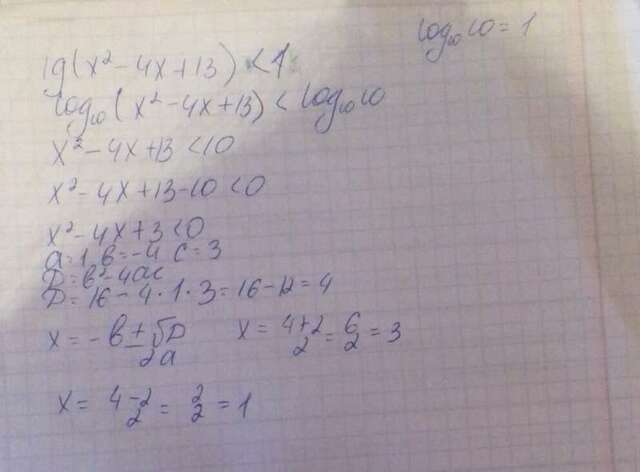 log₁₀10 = 1
lg(x² - 4x + 13) < 1
log₁₀(x² - 4x + 13) < log₁₀10
x² - 4x + 13 < 10
x² - 4x + 13 - 10 < 0
x² - 4x + 3 < 0
a = 1, в = -4 c = 3
D = в² - 4ac
D = 16 - 4 · 1 · 3 = 16 - 12 = 4
x = -в ± √D / 2a x = 4 + 2 / 2 = 6 / 2 = 3
x = 4 - 2 / 2 = 2 / 2 = 1